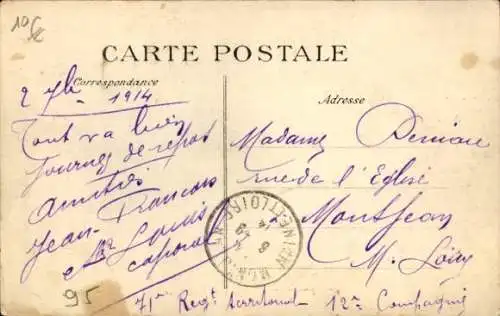 10
CARTE POSTALE
Correspondance
Adresse
2 7bre 1914
Tout va bien
Journée de repos
Amitiés
Jean - François
Louis
caporal
Madame
rue de l'Eglise
Montjean
M. Loire
95
71e Regt territorial 12e Compagnie